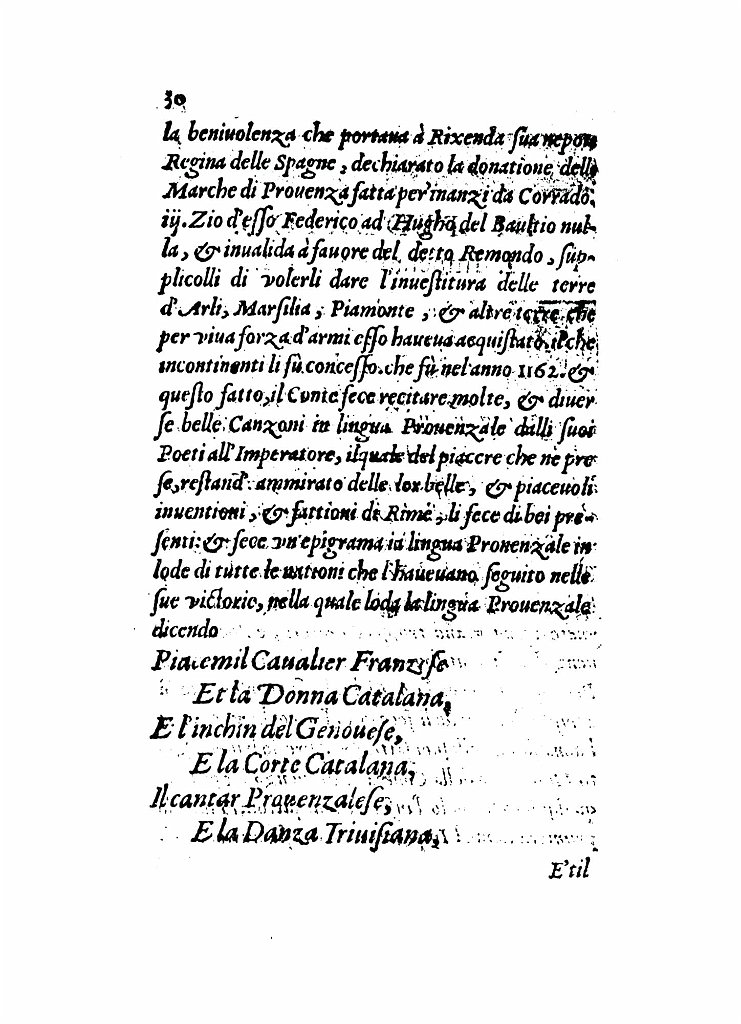 30
la beniuolenza che portaua à Rixenda ſua nepote
Regina delle Spagne, dechiarato la donatione delle
Marche di Prouenza fatta per inanzi da Corrado.
iij. Zio d'eſſo Federico ad Hugho del Baultio nul-
la, & inualida à fauore del detto Remondo, ſup-
plicolli di volerli dare l'inueſtitura delle terre
d'Arli, Marſilia, Piamonte, & altre terre che
per viua forza d'armi eſſo haueua acquiſtato, il che
incontinenti li fù conceſſo. che fù nel anno 1162. &
queſto fatto, il Conte fece recitare molte, & diuer
ſe belle Canzoni in lingua Prouenzale dalli ſuoi
Poeti all'Imperatore, il quale del piacere che ne pre
ſe, reſtand' ammirato delle lor belle, & piaceuoli
inuentioni, & fattioni di Rime, li fece di bei pre-
ſenti: & fece vn'epigrama in lingua Prouenzale in
lode di tutte le nationi che l'haueuano ſeguito nelle
ſue victorie, nella quale loda la lingua Prouenzale
dicendo
Piacemil Caualier Franzeſe
Et la Donna Catalana,
E l'inchin del Genoueſe,
E la Corte Catalana,
Il cantar Prouenzaleſe,
E la Danza Triuiſiana,
E'til